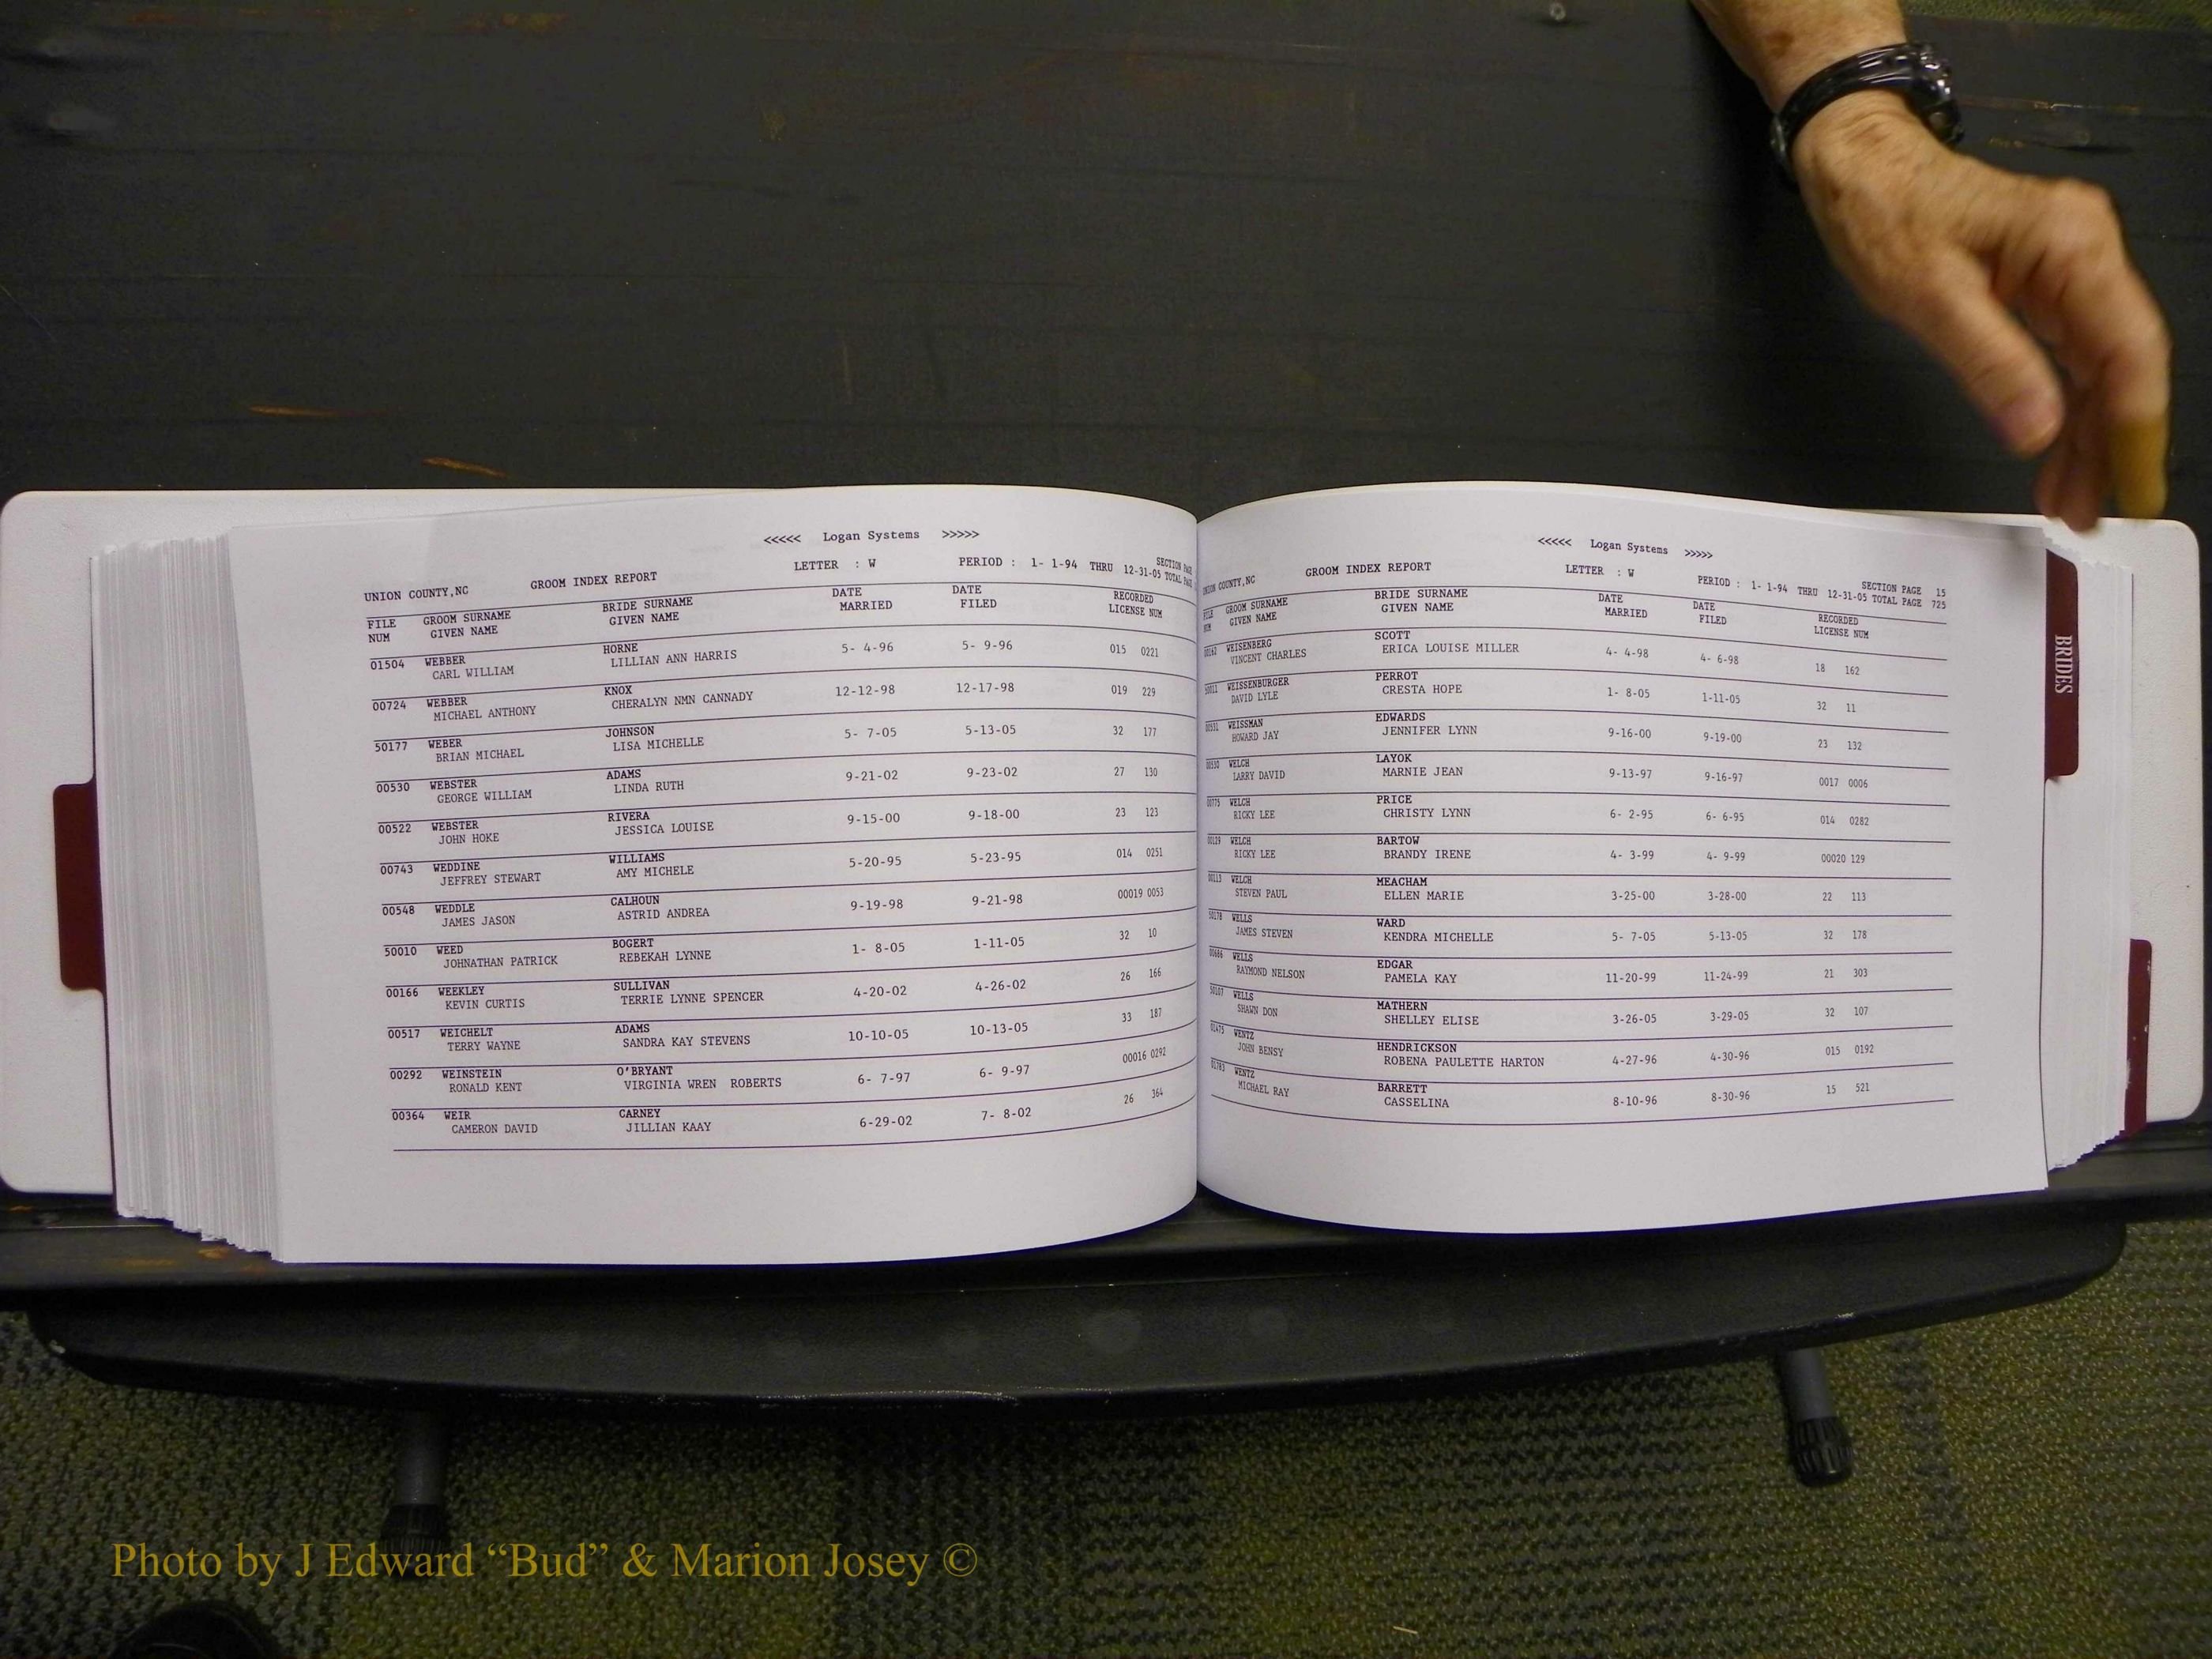 <<<<< Logan Systems >>>>>
UNION COUNTY,NC GROOM INDEX REPORT LETTER : W PERIOD : 1- 1-94 THRU 12-31-05 SECTION PAGE
TOTAL PAGE
FILE GROOM SURNAME BRIDE SURNAME DATE DATE RECORDED
NUM GIVEN NAME GIVEN NAME MARRIED FILED LICENSE NUM
01504 WEBBER HORNE 5- 4-96 5- 9-96 015 0221
CARL WILLIAM LILLIAN ANN HARRIS
00724 WEBBER KNOX 12-12-98 12-17-98 019 229
MICHAEL ANTHONY CHERALYN NMN CANNADY
50177 WEBER JOHNSON 5- 7-05 5-13-05 32 177
BRIAN MICHAEL LISA MICHELLE
00530 WEBSTER ADAMS 9-21-02 9-23-02 27 130
GEORGE WILLIAM LINDA RUTH
00522 WEBSTER RIVERA 9-15-00 9-18-00 23 123
JOHN HOKE JESSICA LOUISE
00743 WEDDINE WILLIAMS 5-20-95 5-23-95 014 0251
JEFFREY STEWART AMY MICHELE
00548 WEDDLE CALHOUN 9-19-98 9-21-98 00019 0053
JAMES JASON ASTRID ANDREA
50010 WEED BOGERT 1- 8-05 1-11-05 32 10
JOHNATHAN PATRICK REBEKAH LYNNE
00166 WEEKLEY SULLIVAN 4-20-02 4-26-02 26 166
KEVIN CURTIS TERRIE LYNNE SPENCER
00517 WEICHELT ADAMS 10-10-05 10-13-05 33 187
TERRY WAYNE SANDRA KAY STEVENS
00292 WEINSTEIN O'BRYANT 6- 7-97 6- 9-97 00016 0292
RONALD KENT VIRGINIA WREN ROBERTS
00364 WEIR CARNEY 6-29-02 7- 8-02 26 364
CAMERON DAVID JILLIAN KAAY
<<<<< Logan Systems >>>>>
UNION COUNTY,NC GROOM INDEX REPORT LETTER : W PERIOD : 1- 1-94 THRU 12-31-05 SECTION PAGE 15
TOTAL PAGE 725
FILE GROOM SURNAME BRIDE SURNAME DATE DATE RECORDED
NUM GIVEN NAME GIVEN NAME MARRIED FILED LICENSE NUM
00162 WEISENBERG SCOTT 4- 4-98 4- 6-98 18 162
VINCENT CHARLES ERICA LOUISE MILLER
50011 WEISSENBURGER PERROT 1- 8-05 1-11-05 32 11
DAVID LYLE CRESTA HOPE
00531 WEISSMAN EDWARDS 9-16-00 9-19-00 23 132
HOWARD JAY JENNIFER LYNN
00530 WELCH LAYOK 9-13-97 9-16-97 0017 0006
LARRY DAVID MARNIE JEAN
00775 WELCH PRICE 6- 2-95 6- 6-95 014 0282
RICKY LEE CHRISTY LYNN
00129 WELCH BARTOW 4- 3-99 4- 9-99 00020 129
RICKY LEE BRANDY IRENE
00113 WELCH MEACHAM 3-25-00 3-28-00 22 113
STEVEN PAUL ELLEN MARIE
50178 WELLS WARD 5- 7-05 5-13-05 32 178
JAMES STEVEN KENDRA MICHELLE
00686 WELLS EDGAR 11-20-99 11-24-99 21 303
RAYMOND NELSON PAMELA KAY
50107 WELLS MATHERN 3-26-05 3-29-05 32 107
SHAWN DON SHELLEY ELISE
01475 WENTZ HENDRICKSON 4-27-96 4-30-96 015 0192
JOHN BENSY ROBENA PAULETTE HARTON
01783 WENTZ BARRETT 8-10-96 8-30-96 15 521
MICHAEL RAY CASSELINA
BRIDES
Photo by J Edward “Bud” & Marion Josey ©